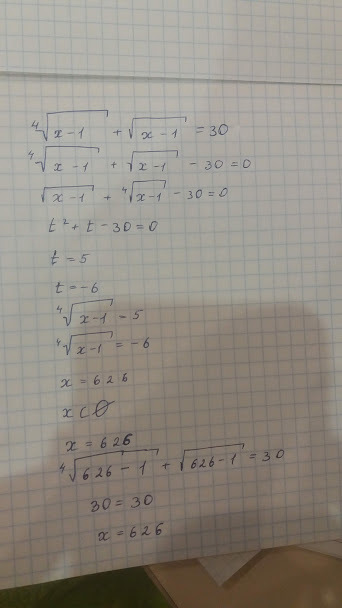 ⁴√(x-1) + √(x-1) = 30
⁴√(x-1) + √(x-1) - 30 = 0
√(x-1) + ⁴√(x-1) - 30 = 0
t² + t - 30 = 0
t = 5
t = -6
⁴√(x-1) = 5
⁴√(x-1) = -6
x = 626
x ⊂ ∅
x = 626
⁴√(626-1) + √(626-1) = 30
30 = 30
x = 626